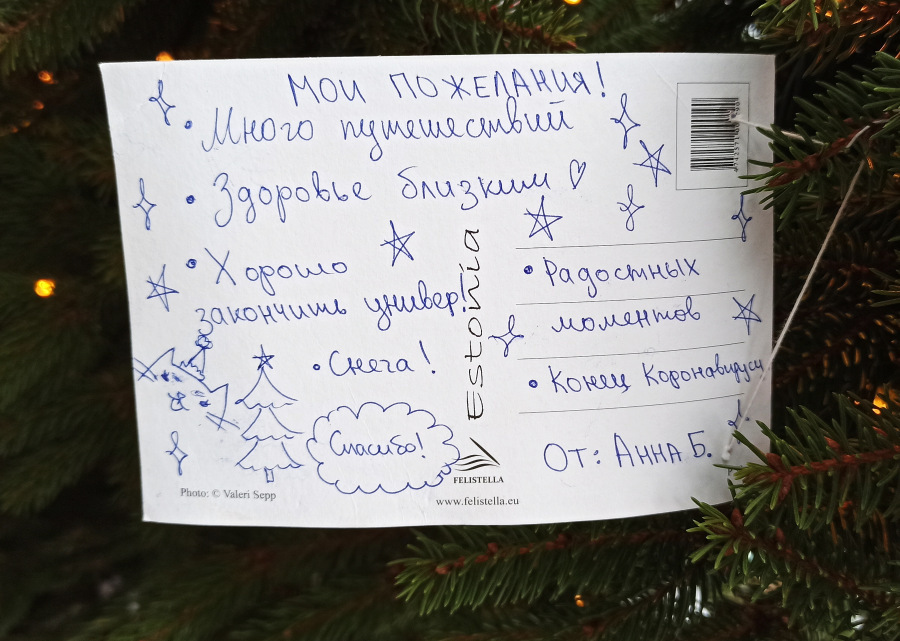 МОИ ПОЖЕЛАНИЯ!
• Много путешествий
• Здоровье близким ♡
• Хорошо
закончить универ!
• Снега!
Спасибо!
Estonia
• Радостных
моментов
• Конец Коронавируси
От: Анна Б.
FELISTELLA
www.felistella.eu
Photo: © Valeri Sepp